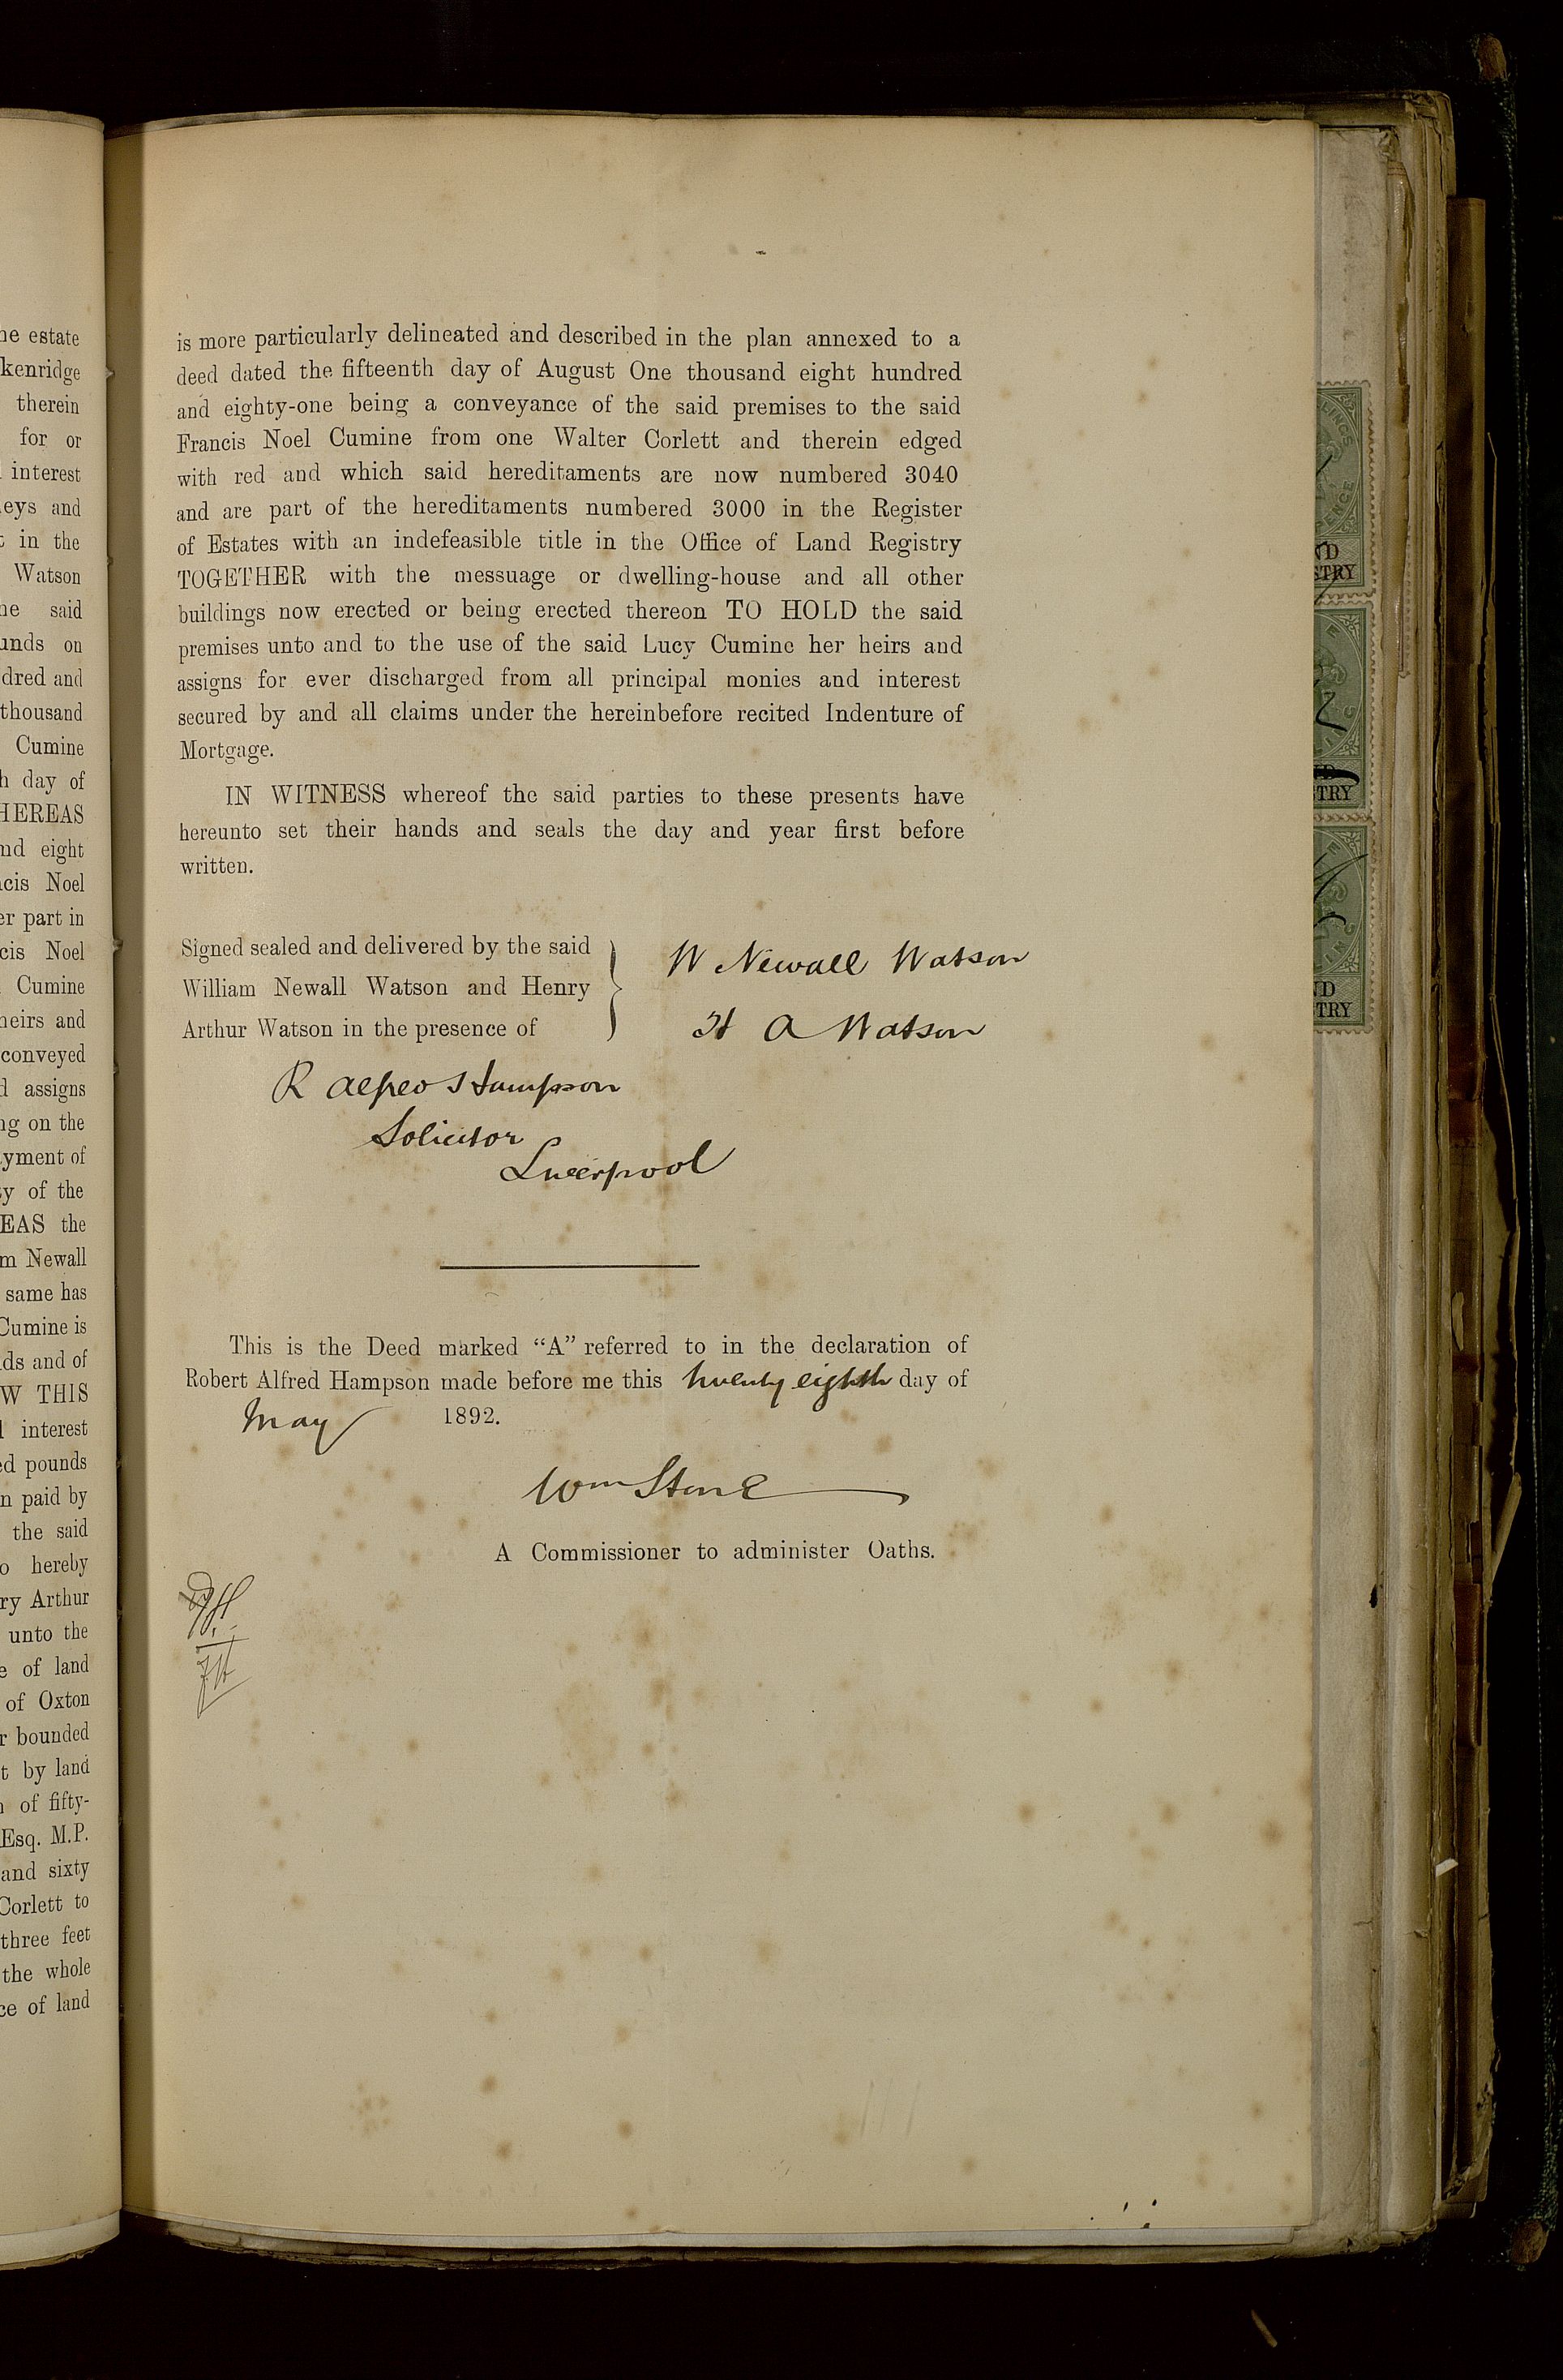 he estate
kenridge
therein
for or
interest
eys and
in the
Watson
he said
unds on
dred and
thousand
Cumine
h day of
HEREAS
nd eight
cis Noel
er part in
cis Noel
Cumine
heirs and
conveyed
d assigns
ng on the
yment of
ty of the
EAS the
m Newall
same has
Cumine is
ds and of
W THIS
l interest
ed pounds
n paid by
the said
o hereby
ry Arthur
unto the
e of land
of Oxton
r bounded
t by land
n of fifty-
Esq. M.P.
and sixty
Corlett to
three feet
the whole
ce of land
is more particularly delineated and described in the plan annexed to a
deed dated the fifteenth day of August One thousand eight hundred
and eighty-one being a conveyance of the said premises to the said
Francis Noel Cumine from one Walter Corlett and therein edged
with red and which said hereditaments are now numbered 3040
and are part of the hereditaments numbered 3000 in the Register
of Estates with an indefeasible title in the Office of Land Registry
TOGETHER with the messuage or dwelling-house and all other
buildings now erected or being erected thereon TO HOLD the said
premises unto and to the use of the said Lucy Cumine her heirs and
assigns for ever discharged from all principal monies and interest
secured by and all claims under the hereinbefore recited Indenture of
Mortgage.
IN WITNESS whereof the said parties to these presents have
hereunto set their hands and seals the day and year first before
written.
Signed sealed and delivered by the said
William Newall Watson and Henry
Arthur Watson in the presence of
W Newall Watson
H A Watson
R Alfred Hampson
Solicitor
Liverpool
This is the Deed marked “A” referred to in the declaration of
Robert Alfred Hampson made before me this twenty eighth day of
May 1892.
Wm Stone
A Commissioner to administer Oaths.
LINGS
PENCE
ND
STRY
TRY
ND
TRY